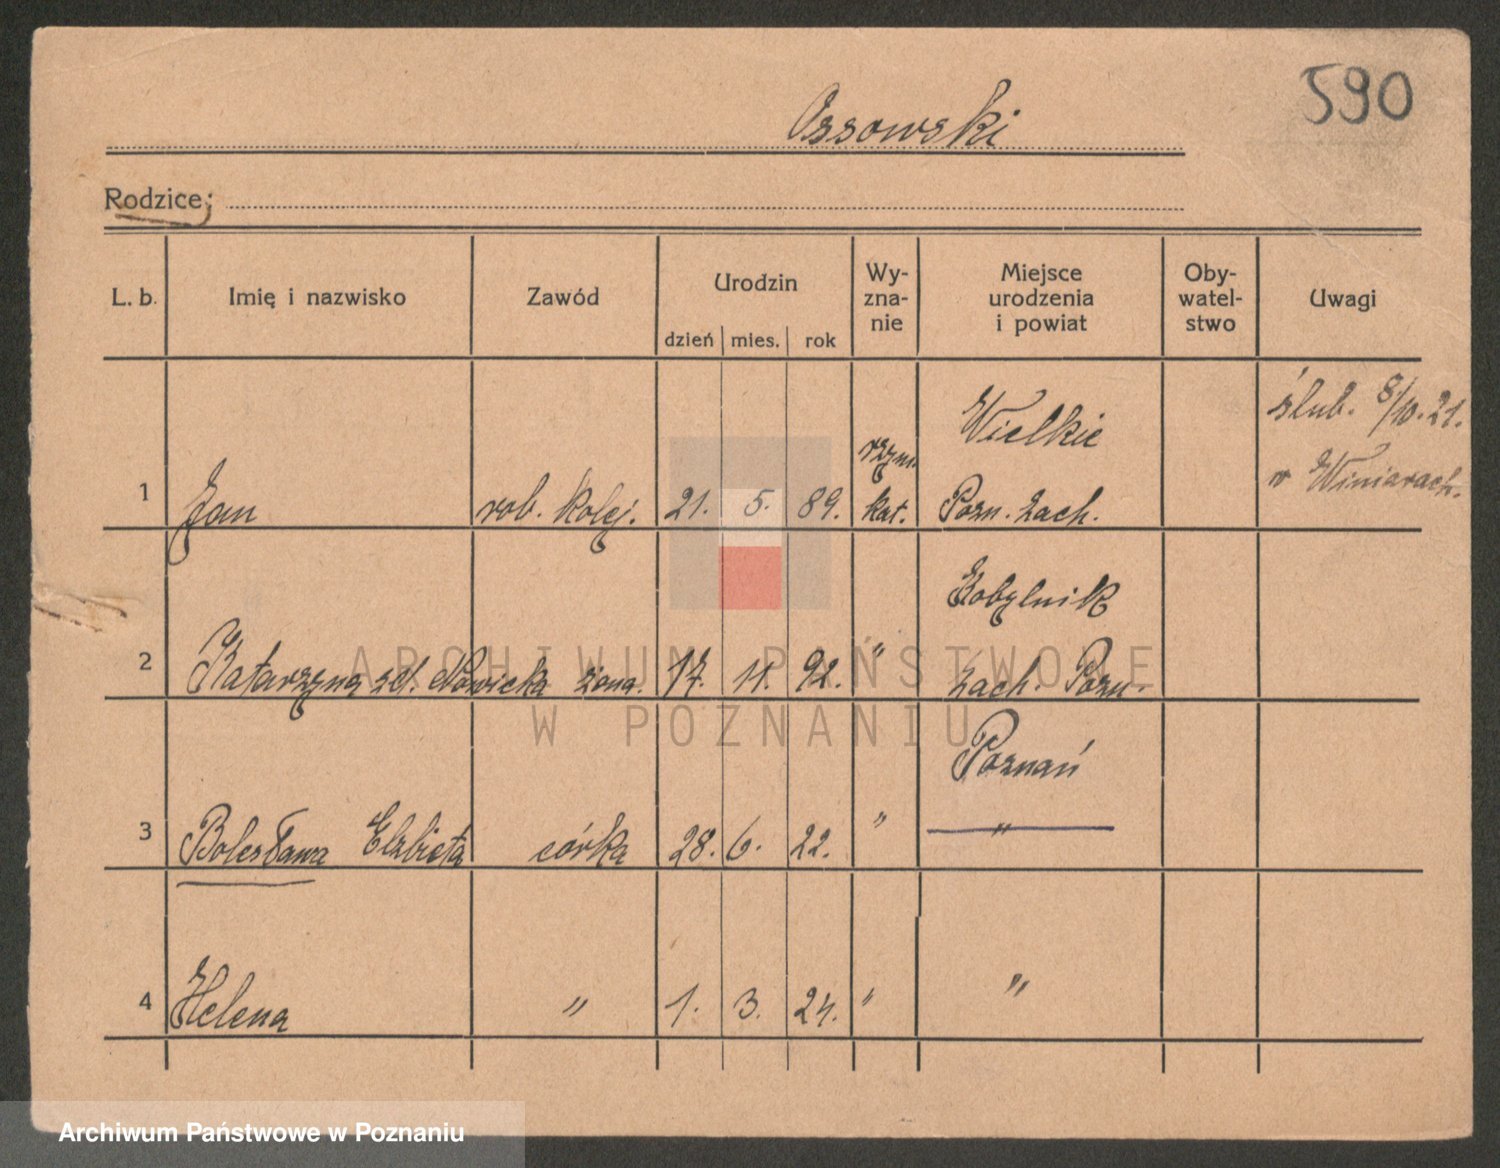 590
Ossowski
Rodzice:
L. b. Imię i nazwisko Zawód Urodzin dzień mies. rok Wy-zna-nie Miejsce urodzenia i powiat Oby-watel-stwo Uwagi
Wielkie ślub. 8/10.21.
rzym. w Winiarach.
1 Jan rob. kolej. 21. 5. 89. kat. Pozn. zach.
Kobylnik
2 Katarzyna zd. Nowicka żona. 17. 11. 92. " zach. Pozn.
Poznań
3 Bolesława Elżbieta córka 28. 6. 22. " "
4 Helena " 1. 3. 24. " "
ARCHIWUM PAŃSTWOWE
W POZNANIU
Archiwum Państwowe w Poznaniu